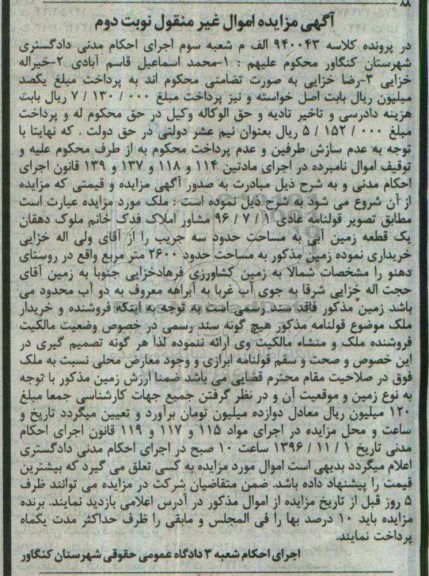 ۸۸
آگهی مزایده اموال غیر منقول نوبت دوم
در پرونده کلاسه ۹۴۰۰۴۳ الف م شعبه سوم اجرای احکام مدنی دادگستری
شهرستان کنگاور محکوم علیهم : ۱-محمد اسماعیل قاسم آبادی ۲-خیراله
خزایی ۳-رضا خزایی به صورت تضامنی محکوم اند به پرداخت مبلغ یکصد
میلیون ریال بابت اصل خواسته و نیز پرداخت مبلغ ۷/۱۳۰/۰۰۰ ریال بابت
هزینه دادرسی و تاخیر تادیه و حق الوکاله وکیل در حق محکوم له و پرداخت
مبلغ ۵/۱۵۲/۰۰۰ ریال بعنوان نیم عشر دولتی در حق دولت . که نهایتا با
توجه به عدم سازش طرفین و عدم پرداخت محکوم به از طرف محکوم علیه و
توقیف اموال نامبرده در اجرای مادتین ۱۱۴ و ۱۱۸ و ۱۳۷ و ۱۳۹ قانون اجرای
احکام مدنی و به شرح ذیل مبادرت به صدور آگهی مزایده و قیمتی که مزایده
از آن شروع می شود به شرح ذیل نموده است : ملک مورد مزایده عبارت است
مطابق تصویر قولنامه عادی ۹۶/۷/۱ مشاور املاک فدک خانم ملوک دهقان
یک قطعه زمین آبی به مساحت حدود سه جریب را از آقای ولی اله خزایی
خریداری نموده زمین مذکور به مساحت حدود ۲۶۰۰ متر مربع واقع در روستای
دهنو را مشخصات شمالا به زمین کشاورزی فرهادخزایی جنوبا به زمین آقای
حجت اله خزایی شرقا به جوی آب غربا به آبراهه معروف به دو آب محدود می
باشد زمین مذکور فاقد سند رسمی است به توجه به اینکه فروشنده و خریدار
ملک موضوع قولنامه مذکور هیچ گونه سند رسمی در خصوص وضعیت مالکیت
فروشنده ملک و منشاء مالکیت وی ارائه ننموده لذا هر گونه تصمیم گیری در
این خصوص و صحت و سقم قولنامه ابرازی و وجود معارض محلی نسبت به ملک
فوق در صلاحیت مقام محترم قضایی می باشد ضمنا ارزش زمین مذکور با توجه
به نوع زمین و موقعیت آن و در نظر گرفتن جمیع جهات کارشناسی جمعا مبلغ
۱۲۰ میلیون ریال معادل دوازده میلیون تومان برآورد و تعیین میگردد تاریخ و
ساعت و محل مزایده در اجرای مواد ۱۱۵ و ۱۱۷ و ۱۱۹ قانون اجرای احکام
مدنی تاریخ ۱۳۹۶/۱۱/۱ ساعت ۱۰ صبح در اجرای احکام مدنی دادگستری
اعلام میگردد بدیهی است اموال مورد مزایده به کسی تعلق می گیرد که بیشترین
قیمت را پیشنهاد داده باشد. ضمن متقاضیان شرکت در مزایده می توانند ظرف
۵ روز قبل از تاریخ مزایده از اموال مذکور در آدرس اعلامی بازدید نمایند. برنده
مزایده باید ۱۰ درصد بها را فی المجلس و مابقی را ظرف حداکثر مدت یکماه
پرداخت نمایند.
اجرای احکام شعبه ۳ دادگاه عمومی حقوقی شهرستان کنگاور